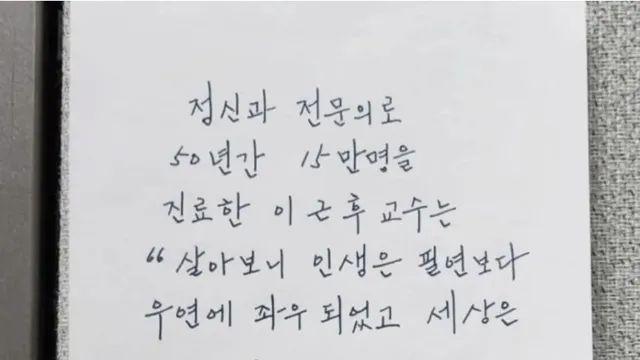 정신과 전문의로
50년간 15만명을
진료한 이근후 교수는
“살아보니 인생은 필연보다
우연에 좌우 되었고 세상은